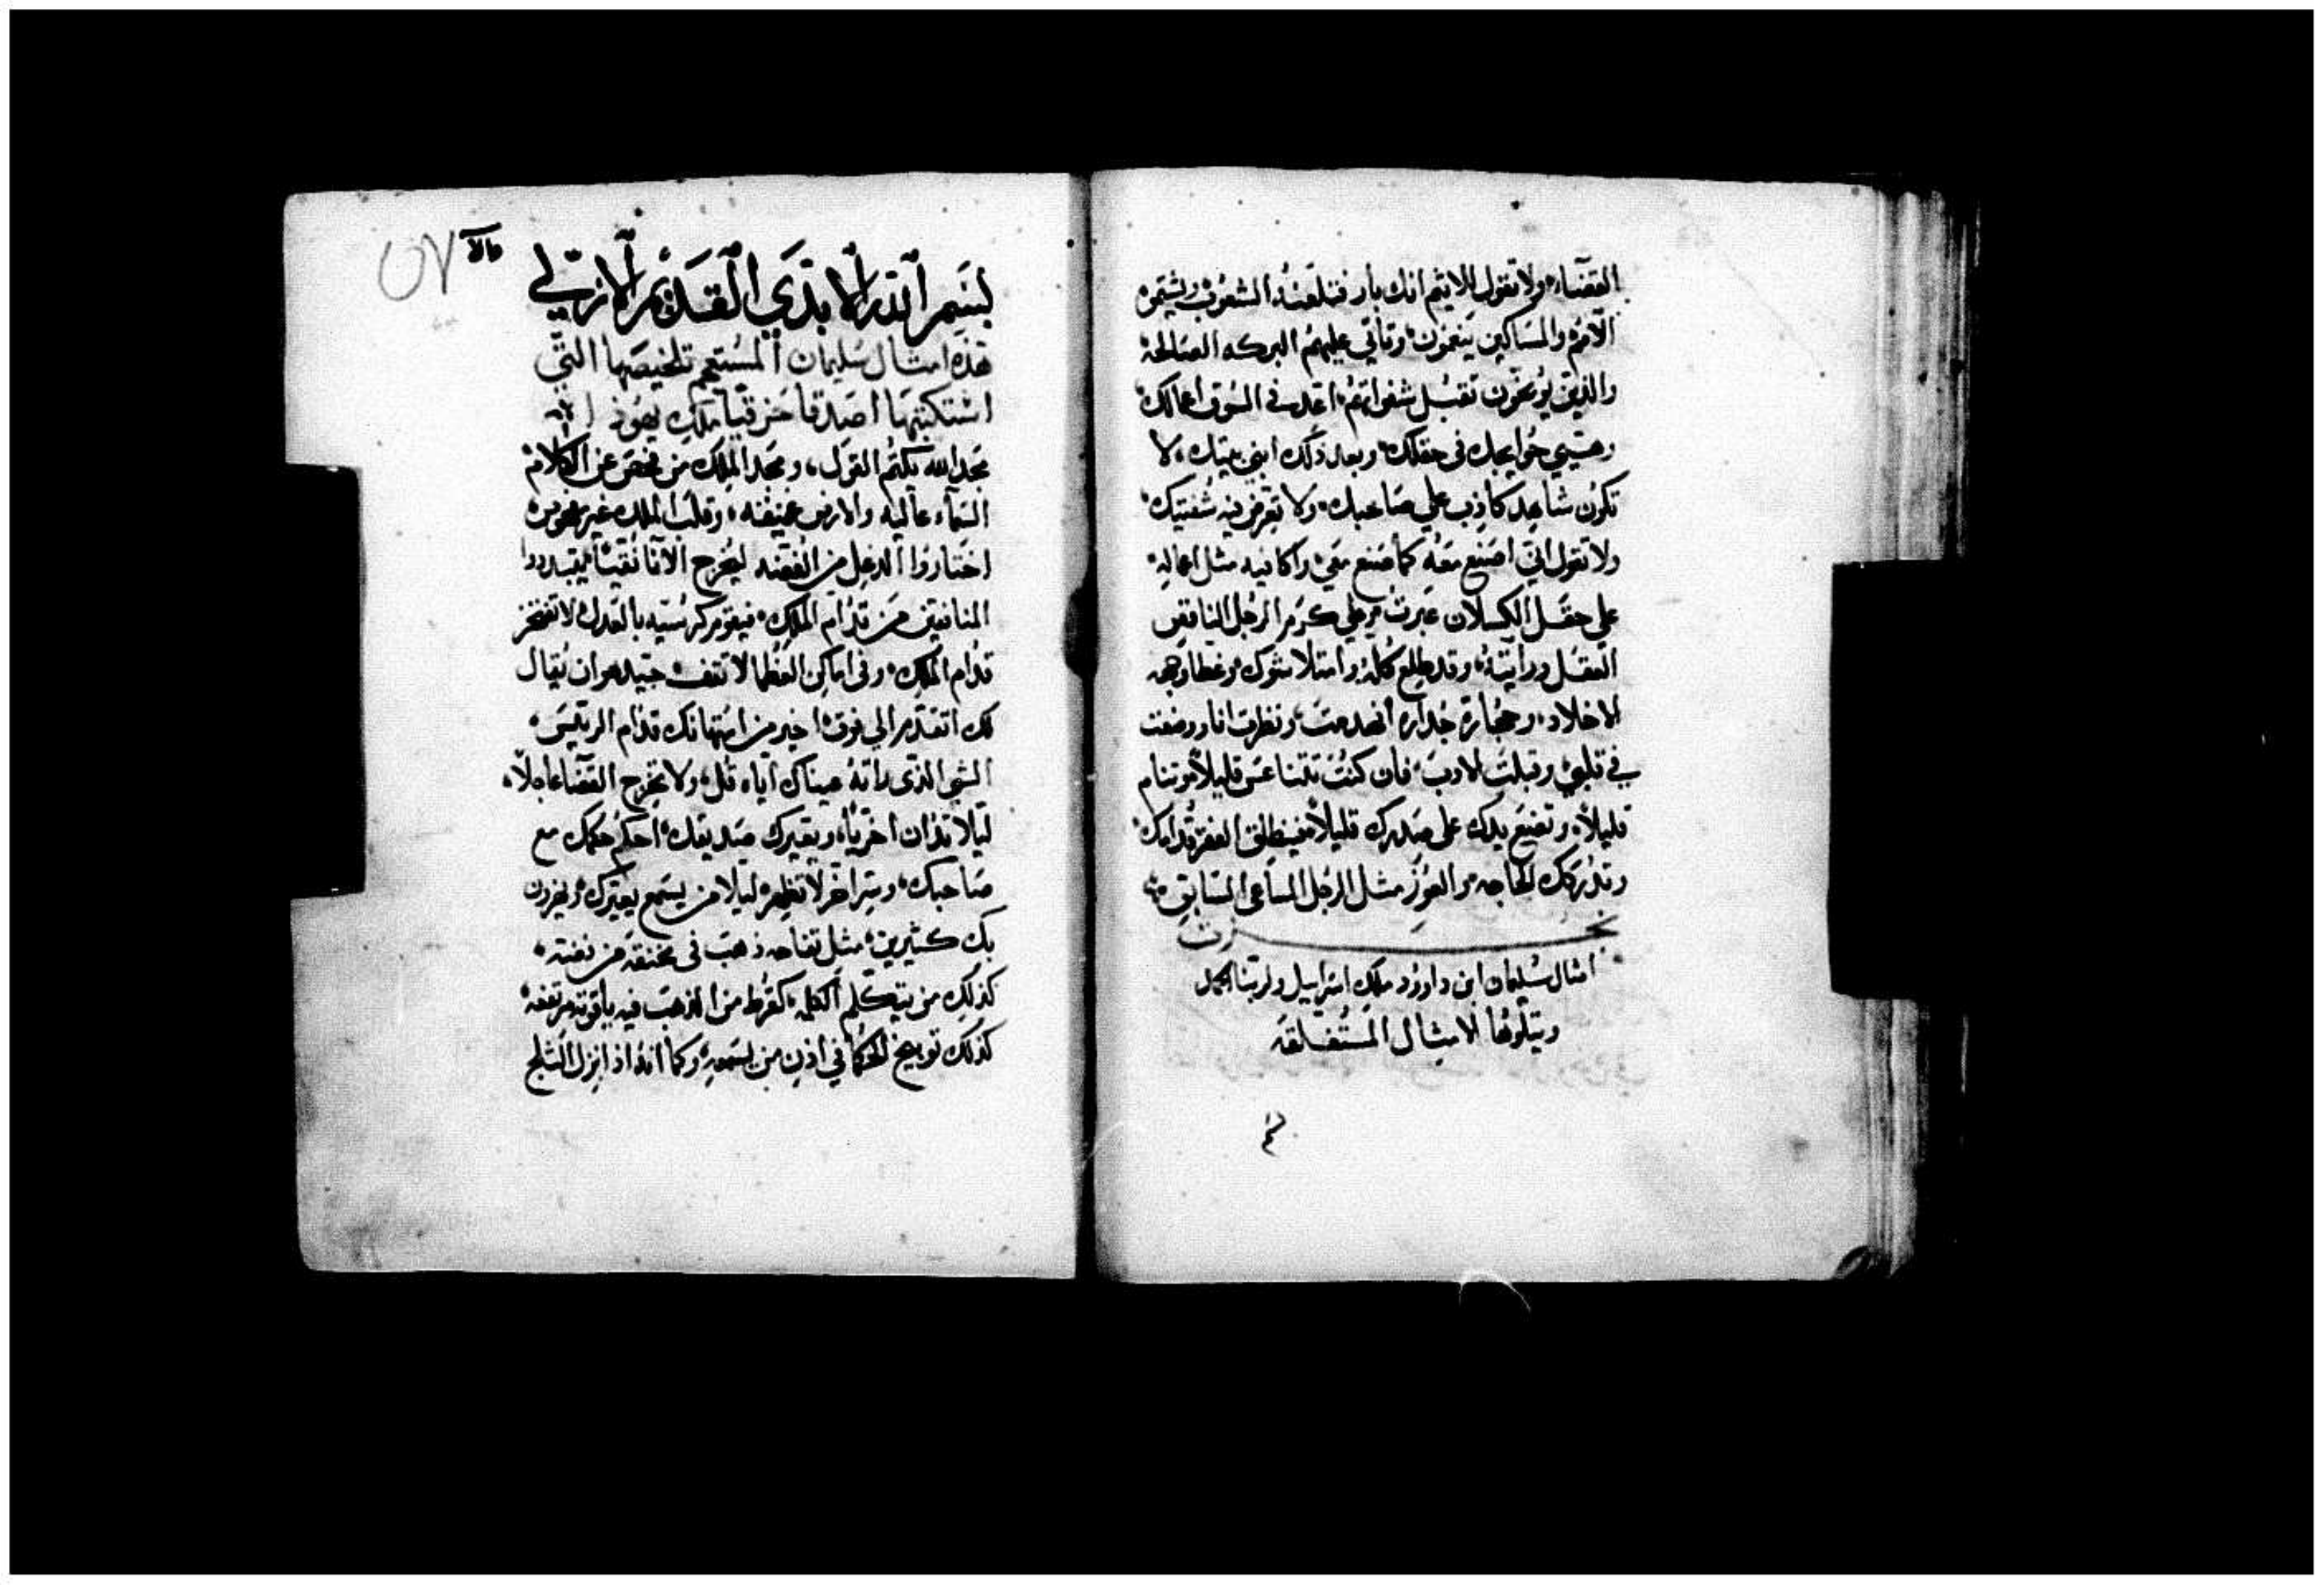 القضاء، ولا تقول للاثيم انك بار فتلعنه الشعوب ويشتموه
الامم والمساكين ينعمون، وتاتي عليهم البركه الصالحة
والذين يوبخون تقبل شفواتهم، اعد في السوق اعمالك،
وهيي حوايجك في حقلك، وبعد ذلك ابني بيتك، لا
تكون شاهد كاذب علي صاحبك، ولا تعرض فيه شفتيك،
ولا تقول اني اصنع معه كما صنع معي، واكافيه مثل اعماله،
علي حقل الكسلان عبرت وعلي كرم الرجل الناقص
العقل ورايته، وقد طلع كله وامتلا شوك، وغطا وجهه
الاخلاد، وحجارة جداره انهدمت، ونظرت انا ووضعت
في قلبي، وقبلت الادب، فان كنت تتناعس قليلا، وتنام
قليلا، وتضع يدك علي صدرك قليلا، فينطلق الفقر قدامك،
وتدركك الحاجه والعوز مثل الرجل الساعي السابق،
نجزت
امثال سليمان ابن داوود ملك اسراييل ولربنا المجد
ويتلوها الامثال المستغلقه
بسم الله الابدي القديم الازلي
هذه امثال سليمان المستعجم تلخيصها التي
اشتكتبها اصدقا حزقيا ملك يهوذا
مجد الله يكتم القول، ومجد الملك من فحص عن الكلام،
السماء عاليه والارض عميقه، وقلب الملك غير مفحوص
اختاروا الدغل من الفضه ليخرج الانا نقيا، يقبددوا
المنافقين من قدام الملك، فيقوم كرسيه بالعدل، لا تفتخر
قدام الملك، وفي اماكن العظما لا تقف، جيد هو ان يقال
لك اتقدم الي فوق، اخير من استهانتك قدام الرييس،
الشي الذي راته عيناك اياه قل، ولا تخرج القضا عاجلا،
ليلا تدان اخريا، ويعيرك صديقك، احكم حكمك مع
صاحبك، وسر اخر لا تظهره ليلا من يسمع يعيرك، ويزدرون
بك كثيرين، مثل تفاحه ذهب في مخنقه من فضه،
كذلك من يتكلم الكلمه، كقرط من الذهب فيه ياقوته مرتفعه،
كذلك توبيخ الحكما في اذن من يسمعه، وكما انه اذا نزل الثلج